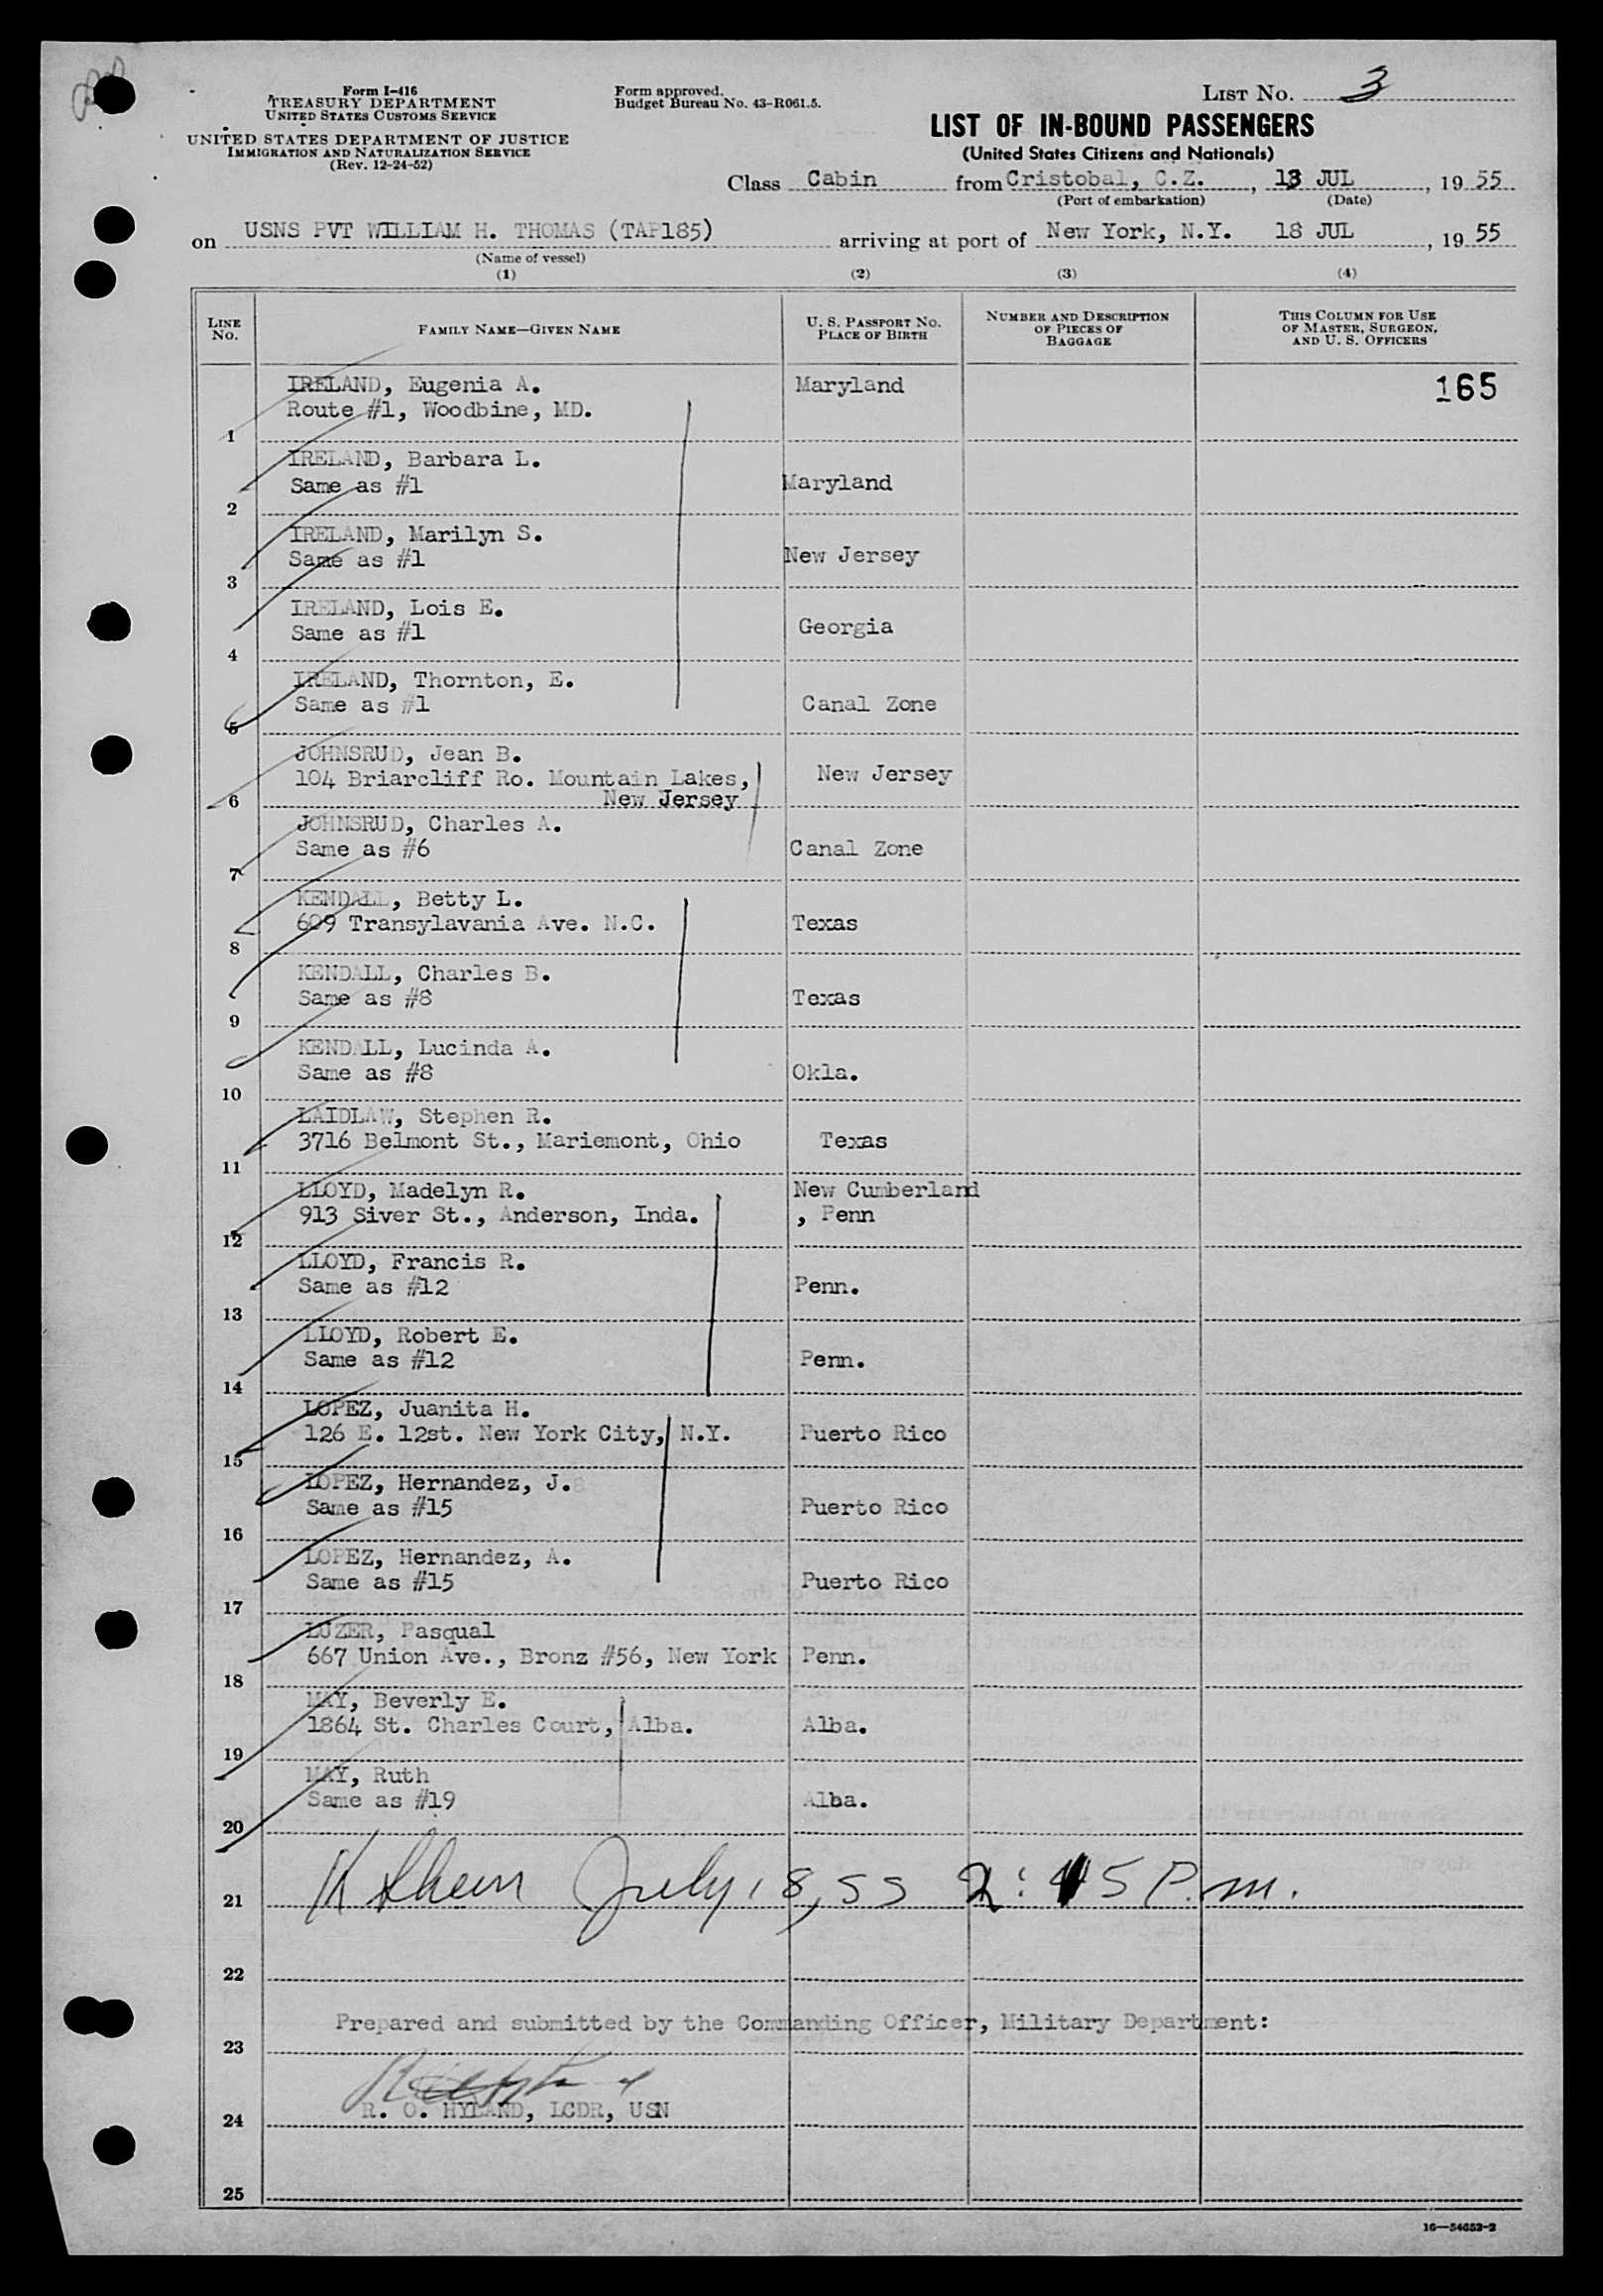 Form I-416
TREASURY DEPARTMENT
UNITED STATES CUSTOMS SERVICE
UNITED STATES DEPARTMENT OF JUSTICE
IMMIGRATION AND NATURALIZATION SERVICE
(Rev. 12-24-52)
Form approved.
Budget Bureau No. 43-R061.5.
LIST NO. 3
LIST OF IN-BOUND PASSENGERS
(United States Citizens and Nationals)
Class Cabin from Cristobal, C.Z., 13 JUL, 1955
(Port of embarkation) (Date)
on USNS PVT WILLIAM H. THOMAS (TAP185) arriving at port of New York, N.Y. 18 JUL, 1955
(Name of vessel)
(1) (2) (3) (4)
LINE NO. FAMILY NAME—GIVEN NAME U. S. PASSPORT NO. PLACE OF BIRTH NUMBER AND DESCRIPTION OF PIECES OF BAGGAGE THIS COLUMN FOR USE OF MASTER, SURGEON, AND U. S. OFFICERS
IRELAND, Eugenia A. Maryland 165
Route #1, Woodbine, MD.
1
IRELAND, Barbara L.
Same as #1 Maryland
2
IRELAND, Marilyn S.
Same as #1 New Jersey
3
IRELAND, Lois E.
Same as #1 Georgia
4
IRELAND, Thornton, E.
Same as #1 Canal Zone
5
JOHNSRUD, Jean B.
104 Briarcliff Ro. Mountain Lakes, New Jersey
6 New Jersey
JOHNSRUD, Charles A.
Same as #6 Canal Zone
7
KENDALL, Betty L.
609 Transylavania Ave. N.C. Texas
8
KENDALL, Charles B.
Same as #8 Texas
9
KENDALL, Lucinda A.
Same as #8 Okla.
10
LAIDLAW, Stephen R.
3716 Belmont St., Mariemont, Ohio Texas
11
LLOYD, Madelyn R. New Cumberland
913 Siver St., Anderson, Inda. , Penn
12
LLOYD, Francis R.
Same as #12 Penn.
13
LLOYD, Robert E.
Same as #12 Penn.
14
LOPEZ, Juanita H.
126 E. 12st. New York City, N.Y. Puerto Rico
15
LOPEZ, Hernandez, J.
Same as #15 Puerto Rico
16
LOPEZ, Hernandez, A.
Same as #15 Puerto Rico
17
LUZER, Pasqual
667 Union Ave., Bronz #56, New York Penn.
18
MAY, Beverly E.
1864 St. Charles Court, Alba. Alba.
19
MAY, Ruth
Same as #19 Alba.
20
July 18, 55 2:45 P.m.
21
22
Prepared and submitted by the Commanding Officer, Military Department:
23
R. O. HYLAND, LCDR, USN
24
25
16—54652-2